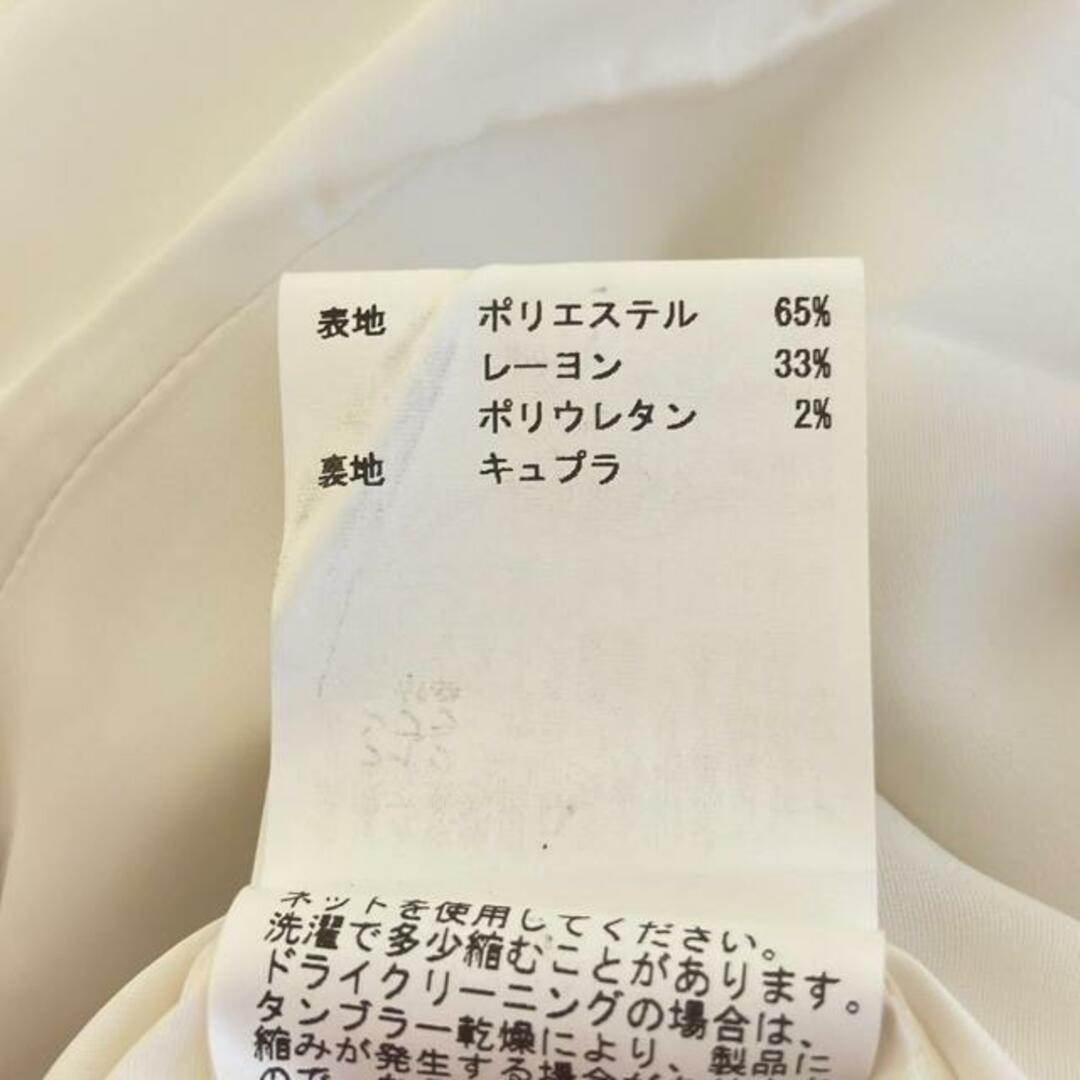 表地 ポリエステル 65%
レーヨン 33%
ポリウレタン 2%
裏地 キュプラ
ネットを使用してください。
洗濯で多少縮むことがあります。
ドライクリーニングの場合は、
タンブラー乾燥により、製品に
縮みが発生する場合が
ので